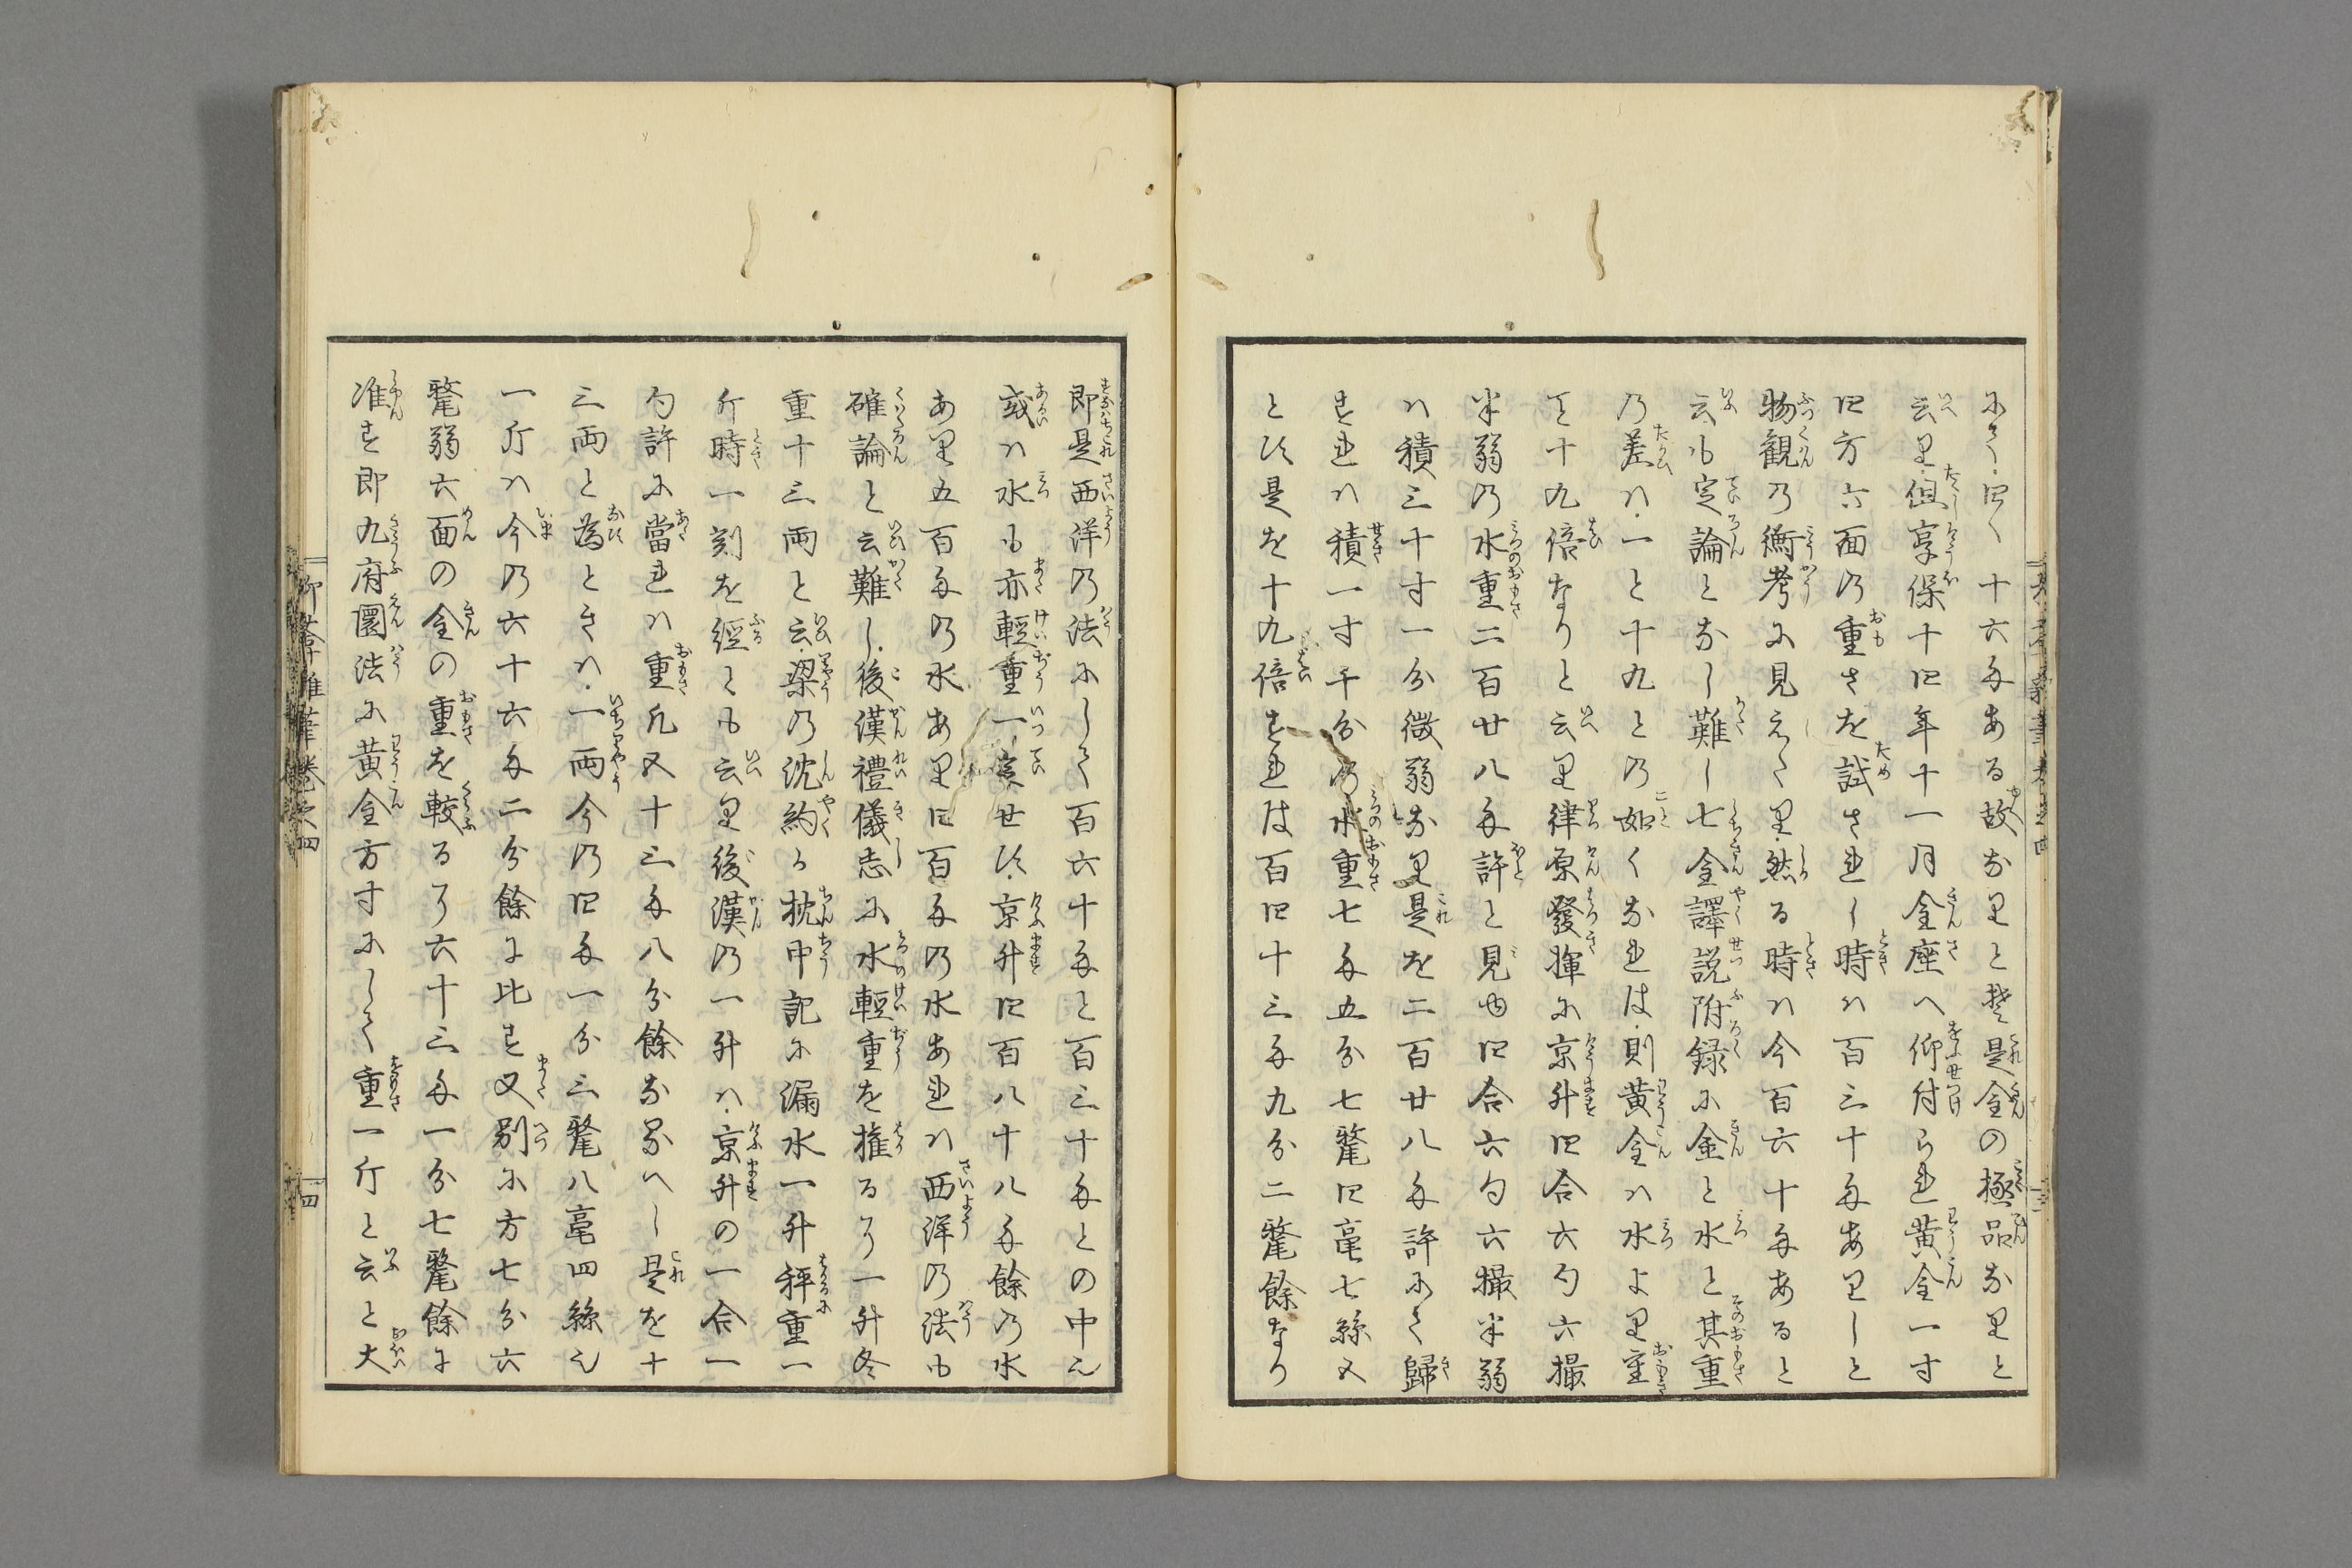 にて四く十六匁ある故なりと楚是金の極品なりと
云り但享保十四年十一月金座へ仰付られ黄金一寸
四方六面の重さを試されし時ハ百三十匁ありしと
物観の衡考に見えたり然る時ハ今百六十匁あると
云も定論となし難し七金譯説附録に金と水と其重
の差ハ一と十九との如くなれは則黄金ハ水より重
さ十九倍なりと云り律原發揮に京升四合六勺六撮
半弱の水重二百廿八匁許と見ゆ四合六勺六撮半弱
ハ積三十寸一分微弱なり是を二百廿八匁許にて歸
すれハ積一寸千分の水重七匁五分七釐四毫七絲又
とす是を十九倍すれは百四十三匁九分二釐餘なり
即是西洋の法にして百六十匁と百三十匁との中也
或ハ水も亦輕重一定せす京升四百八十八匁餘の水
あり五百匁の水あり四百匁の水あれハ西洋の法も
確論と云難し後漢禮儀志に水輕重を権るに一升冬
重十三両と云梁の沈約か枕中記に漏水一升秤重一
斤時一刻を經とも云り後漢の一升ハ京升の一合一
勺許に當れハ重凡又十三匁八分餘なるへし是を十
三両と為ときハ一両今の四匁一分三釐八毫四絲也
一斤ハ今の六十六匁二分餘に比す又別に方七分六
釐弱六面の金の重を較るに六十三匁一分七釐餘に
准す即九府圜法に黄金方寸にして重一斤と云と大
卯花園雑筆巻之四
四